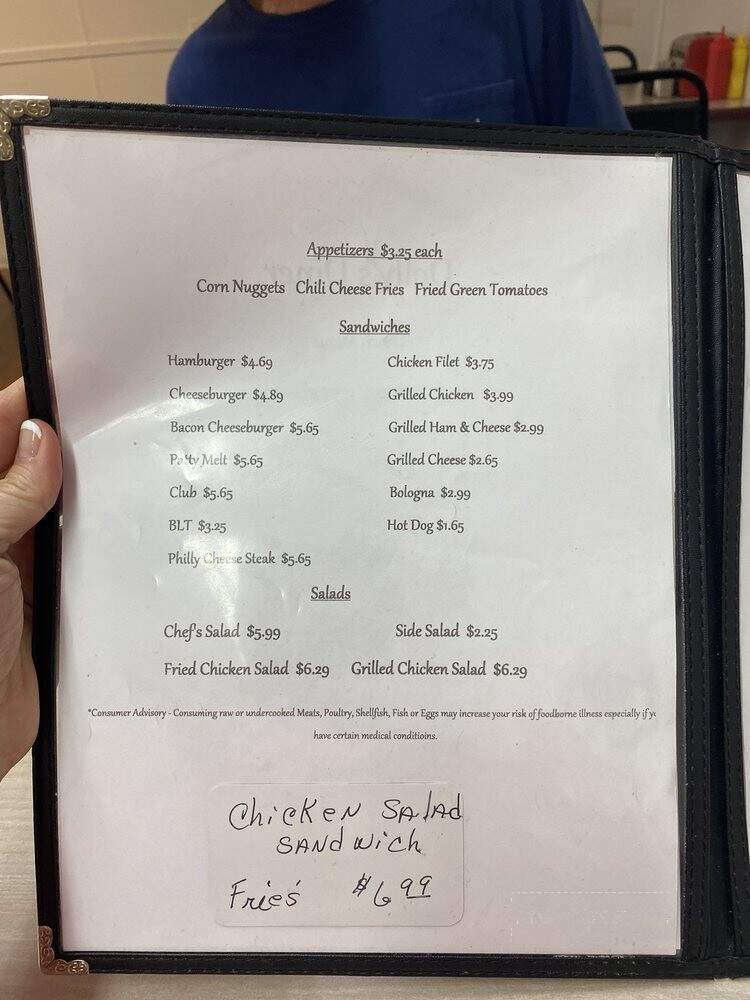 Appetizers $3.25 each
Corn Nuggets Chili Cheese Fries Fried Green Tomatoes
Sandwiches
Hamburger $4.69 Chicken Filet $3.75
Cheeseburger $4.89 Grilled Chicken $3.99
Bacon Cheeseburger $5.65 Grilled Ham & Cheese $2.99
Patty Melt $5.65 Grilled Cheese $2.65
Club $5.65 Bologna $2.99
BLT $3.25 Hot Dog $1.65
Philly Cheese Steak $5.65
Salads
Chef's Salad $5.99 Side Salad $2.25
Fried Chicken Salad $6.29 Grilled Chicken Salad $6.29
*Consumer Advisory - Consuming raw or undercooked Meats, Poultry, Shellfish, Fish or Eggs may increase your risk of foodborne illness especially if
have certain medical conditioins.
Chicken Salad
Sandwich
Frie's $6.99